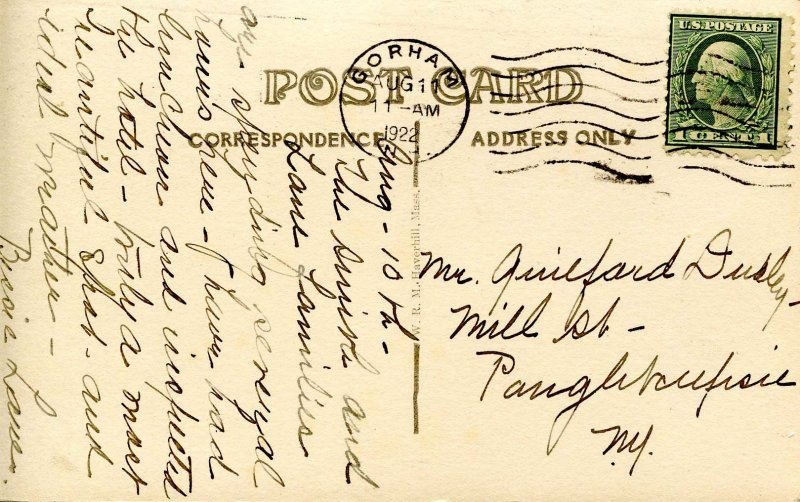 POST CARD
CORRESPONDENCE
ADDRESS ONLY
GORHAM
AUG 11
11-AM
1922
U.S. POSTAGE
1 CENT 1
W. R. M. Haverhill, Mass.
Aug - 10th -
The Smith and
Lane families
are spending several
hours here - have had
luncheon and inspected
the hotel - truly a most
beautiful spot - and
ideal weather -
Bessie Lane.
Mr. Guilford Dudley
Mill St -
Poughkeepsie
N.Y.